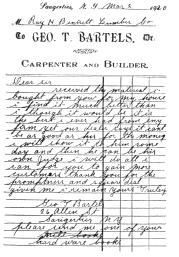 Saugerties, N Y Mar 2 1920
M Ray H Bennett Lumber Co
To GEO. T. BARTELS, Dr.
CARPENTER AND BUILDER.
Dear sir
received the material i
bought from you for my house
i find it much better than
i thought it would be it is
the best i ever had from any
firm yet our dealer says it cant
be as good as his for the money
i will show it to him some
day and then he can be his
own Judge i will do all i
can for you to gain more
customers thank you for the
promptness and square deal
given me i remain yours Truley
Geo T Bartels
26 Allen St
Saugerties N Y
please send me one of your
mill book
hard ware book